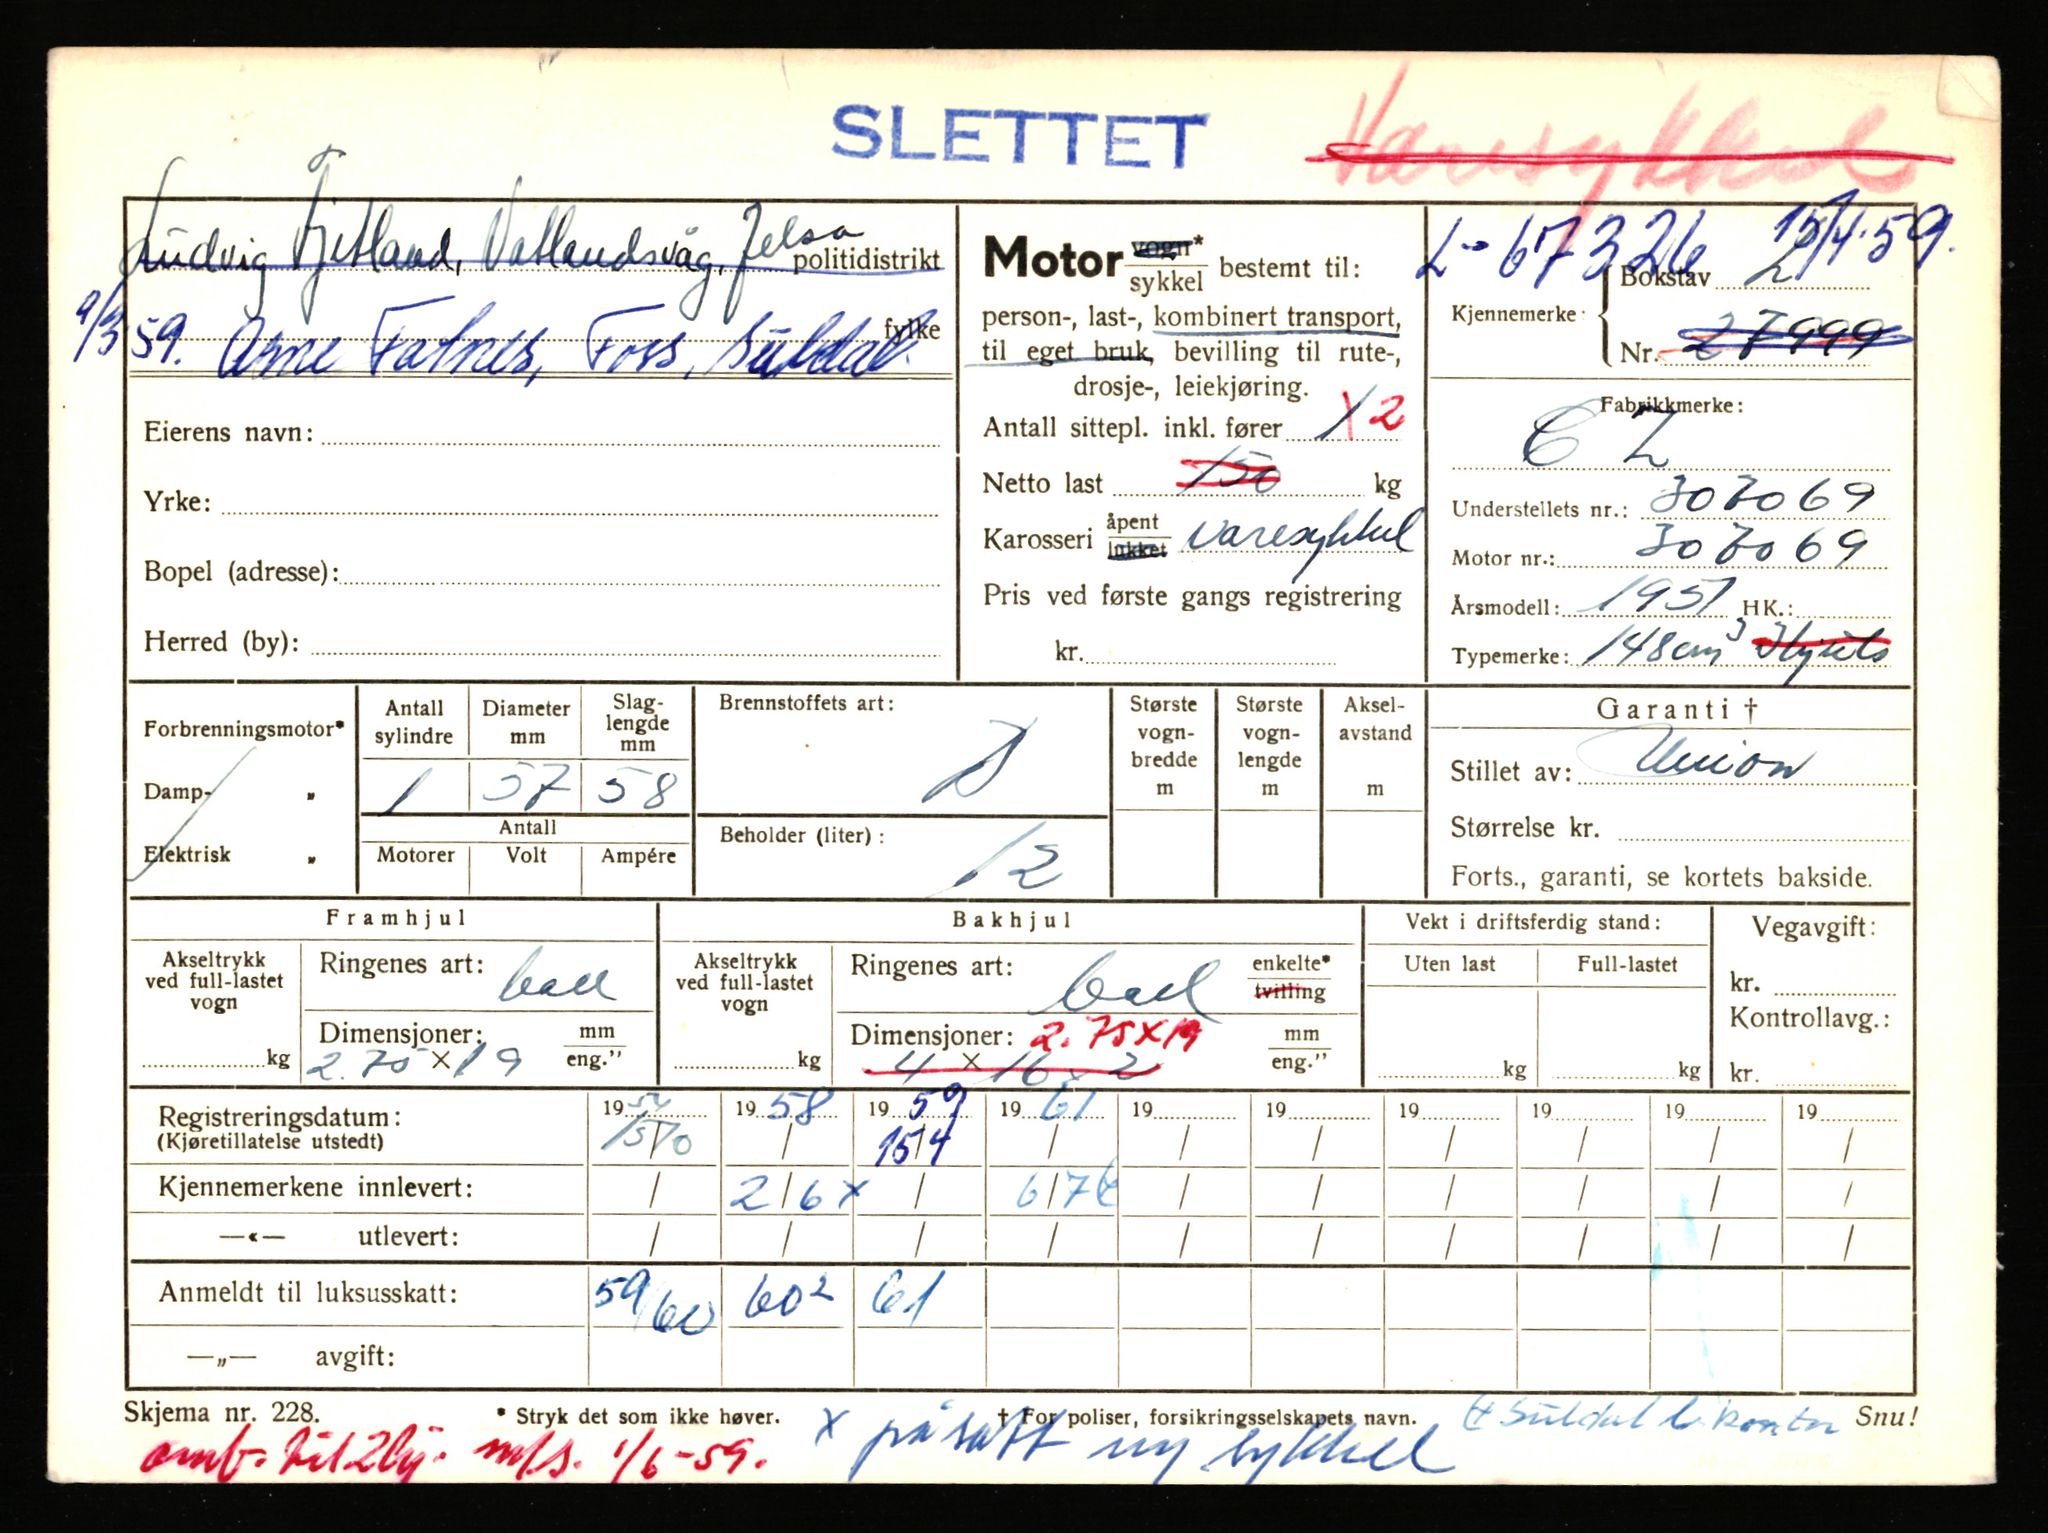 SLETTET
Varesykkel
Ludvig Fjetland, Vatlandsvåg, Jelsa
politidistrikt
9/3 59. Arne Fatnes, Foss, Suldal.
fylke
Eierens navn:
Yrke:
Bopel (adresse):
Herred (by):
Motor vogn* sykkel bestemt til:
person-, last-, kombinert transport,
til eget bruk, bevilling til rute-,
drosje-, leiekjøring.
Antall sittepl. inkl. fører 1 2
Netto last 150 kg
Karosseri åpent lukket varesykkel
Pris ved første gangs registrering
kr.
L-67326 15/4-59.
Kjennemerke: Bokstav L
Nr. 27999
Fabrikkmerke:
CZ
Understellets nr.: 307069
Motor nr.: 307069
Årsmodell: 1951 HK.:
Typemerke: 148cm3 3hjuls
Forbrenningsmotor*
Damp- „
Elektrisk „
Antall sylindre 1
Diameter mm 57
Slag-lengde mm 58
Antall
Motorer Volt Ampére
Brennstoffets art:
Beholder (liter): 12
Største vogn-bredde m
Største vogn-lengde m
Aksel-avstand m
Garanti †
Stillet av: Union
Størrelse kr.
Forts., garanti, se kortets bakside.
Framhjul
Akseltrykk ved full-lastet vogn kg
Ringenes art: ball
Dimensjoner: mm eng."
2.75 × 19
Bakhjul
Akseltrykk ved full-lastet vogn kg
Ringenes art: ball enkelte* tvilling
Dimensjoner: 2.75×19 mm eng."
4 × 16 × 2
Vekt i driftsferdig stand:
Uten last Full-lastet
kg kg
Vegavgift:
kr.
Kontrollavg.:
kr.
Registreringsdatum: 19 19 58 19 59 19 61 19 19 19 19 19 19
(Kjøretillatelse utstedt) / / 15/4 / / / / / / /
Kjennemerkene innlevert: / 2/6 x / 6/7 / / / / / /
—«— utlevert: / / / / / / / / / /
Anmeldt til luksusskatt: 59/60 60² 61
—„— avgift:
Skjema nr. 228. * Stryk det som ikke høver. † For poliser, forsikringsselskapets navn. Snu!
omb. til 2hj. m/s. 1/6-59.
x påsatt ny sykkel
Suldal l. kontor